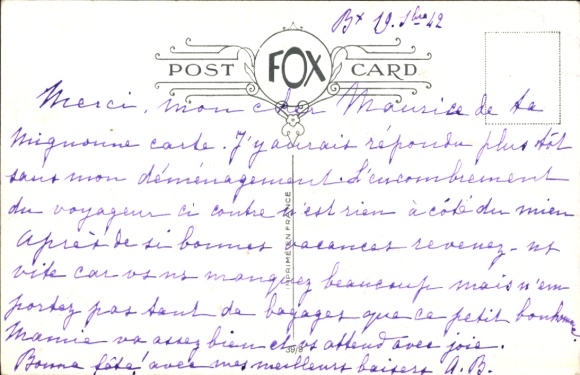 Bx 19. 7bre 42
FOX
POST CARD
Merci, mon cher Maurice de ta
mignonne carte. J'y aurais répondu plus tôt
sans mon déménagement. L'encombrement
du voyageur ci contre n'est rien à côté du mien
Après de si bonnes vacances revenez-ns
vite car vs ns manquez beaucoup mais n'em
portez pas tant de bagages que ce petit bonhomme.
Mamie va assez bien et vs attend avec joie.
Bonne fête! avec mes meilleurs baisers A. B.
IMPRIMÉ EN FRANCE
39/8